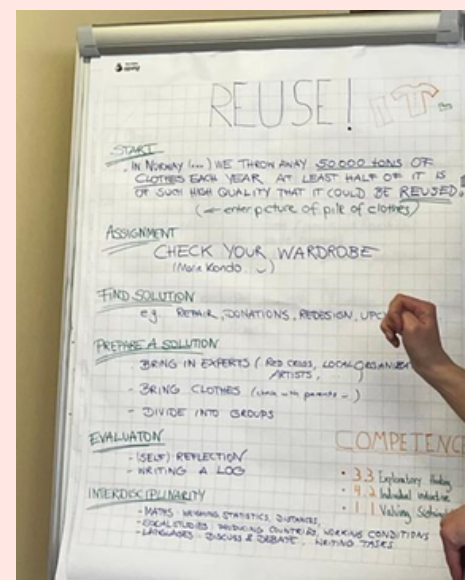 REUSE!
START
. IN NORWAY (...) WE THROW AWAY 50.000 TONS OF
CLOTHES EACH YEAR. AT LEAST HALF OF IT IS
OF SUCH HIGH QUALITY THAT IT COULD BE REUSED.
(← enter picture of pile of clothes)
ASSIGNMENT
CHECK YOUR WARDROBE
(Marie Kondo
FIND SOLUTION
e.g. REPAIR, DONATIONS, REDESIGN,
PREPARE A SOLUTION
- BRING IN EXPERTS (RED CROSS, LOCAL
ARTISTS, )
- BRING CLOTHES (check with parents )
- DIVIDE INTO GROUPS
EVALUATON
- (SELF) REFLECTION
- WRITING A LOG
INTERDISCIPLINARITY
- MATHS: WEIGHING, STATISTICS, DISTANCES,
- SOCIAL STUDIES: PRODUCING COUNTRIES, WORKING CONDITIONS
- LANGUAGES: DISCUSS & DEBATE, WRITING TASKS
COMPETENC
• 3.3 Exploratory
• 4.2 Individual initiative
• 1.1 Valuing